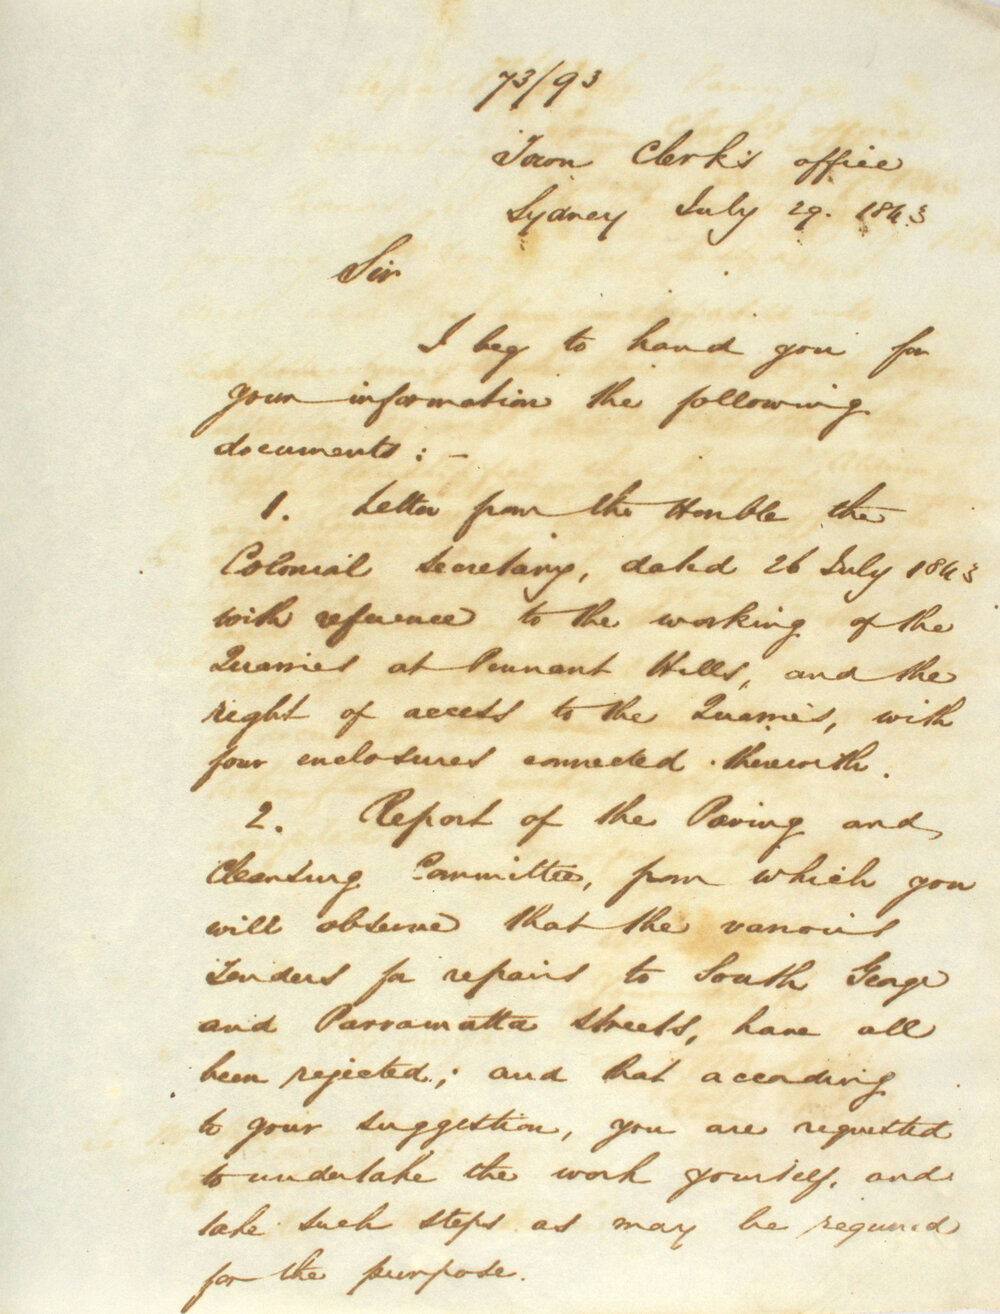 73/93
Town Clerk's office
Sydney July 29. 1843
Sir
I beg to hand you for
your information the following
documents : -
1. Letter from the Honble the
Colonial Secretary, dated 26 July 1843
with reference to the working of the
Quarries at Pennant Hills, and the
right of access to the Quarries, with
four enclosures connected therewith.
2. Report of the Paving and
Cleansing Committee, from which you
will observe that the various
Tenders for repairs to South George
and Parramatta Streets, have all
been rejected; and that according
to your suggestion, you are requested
to undertake the work yourself, and
take such steps as may be required
for the purpose.